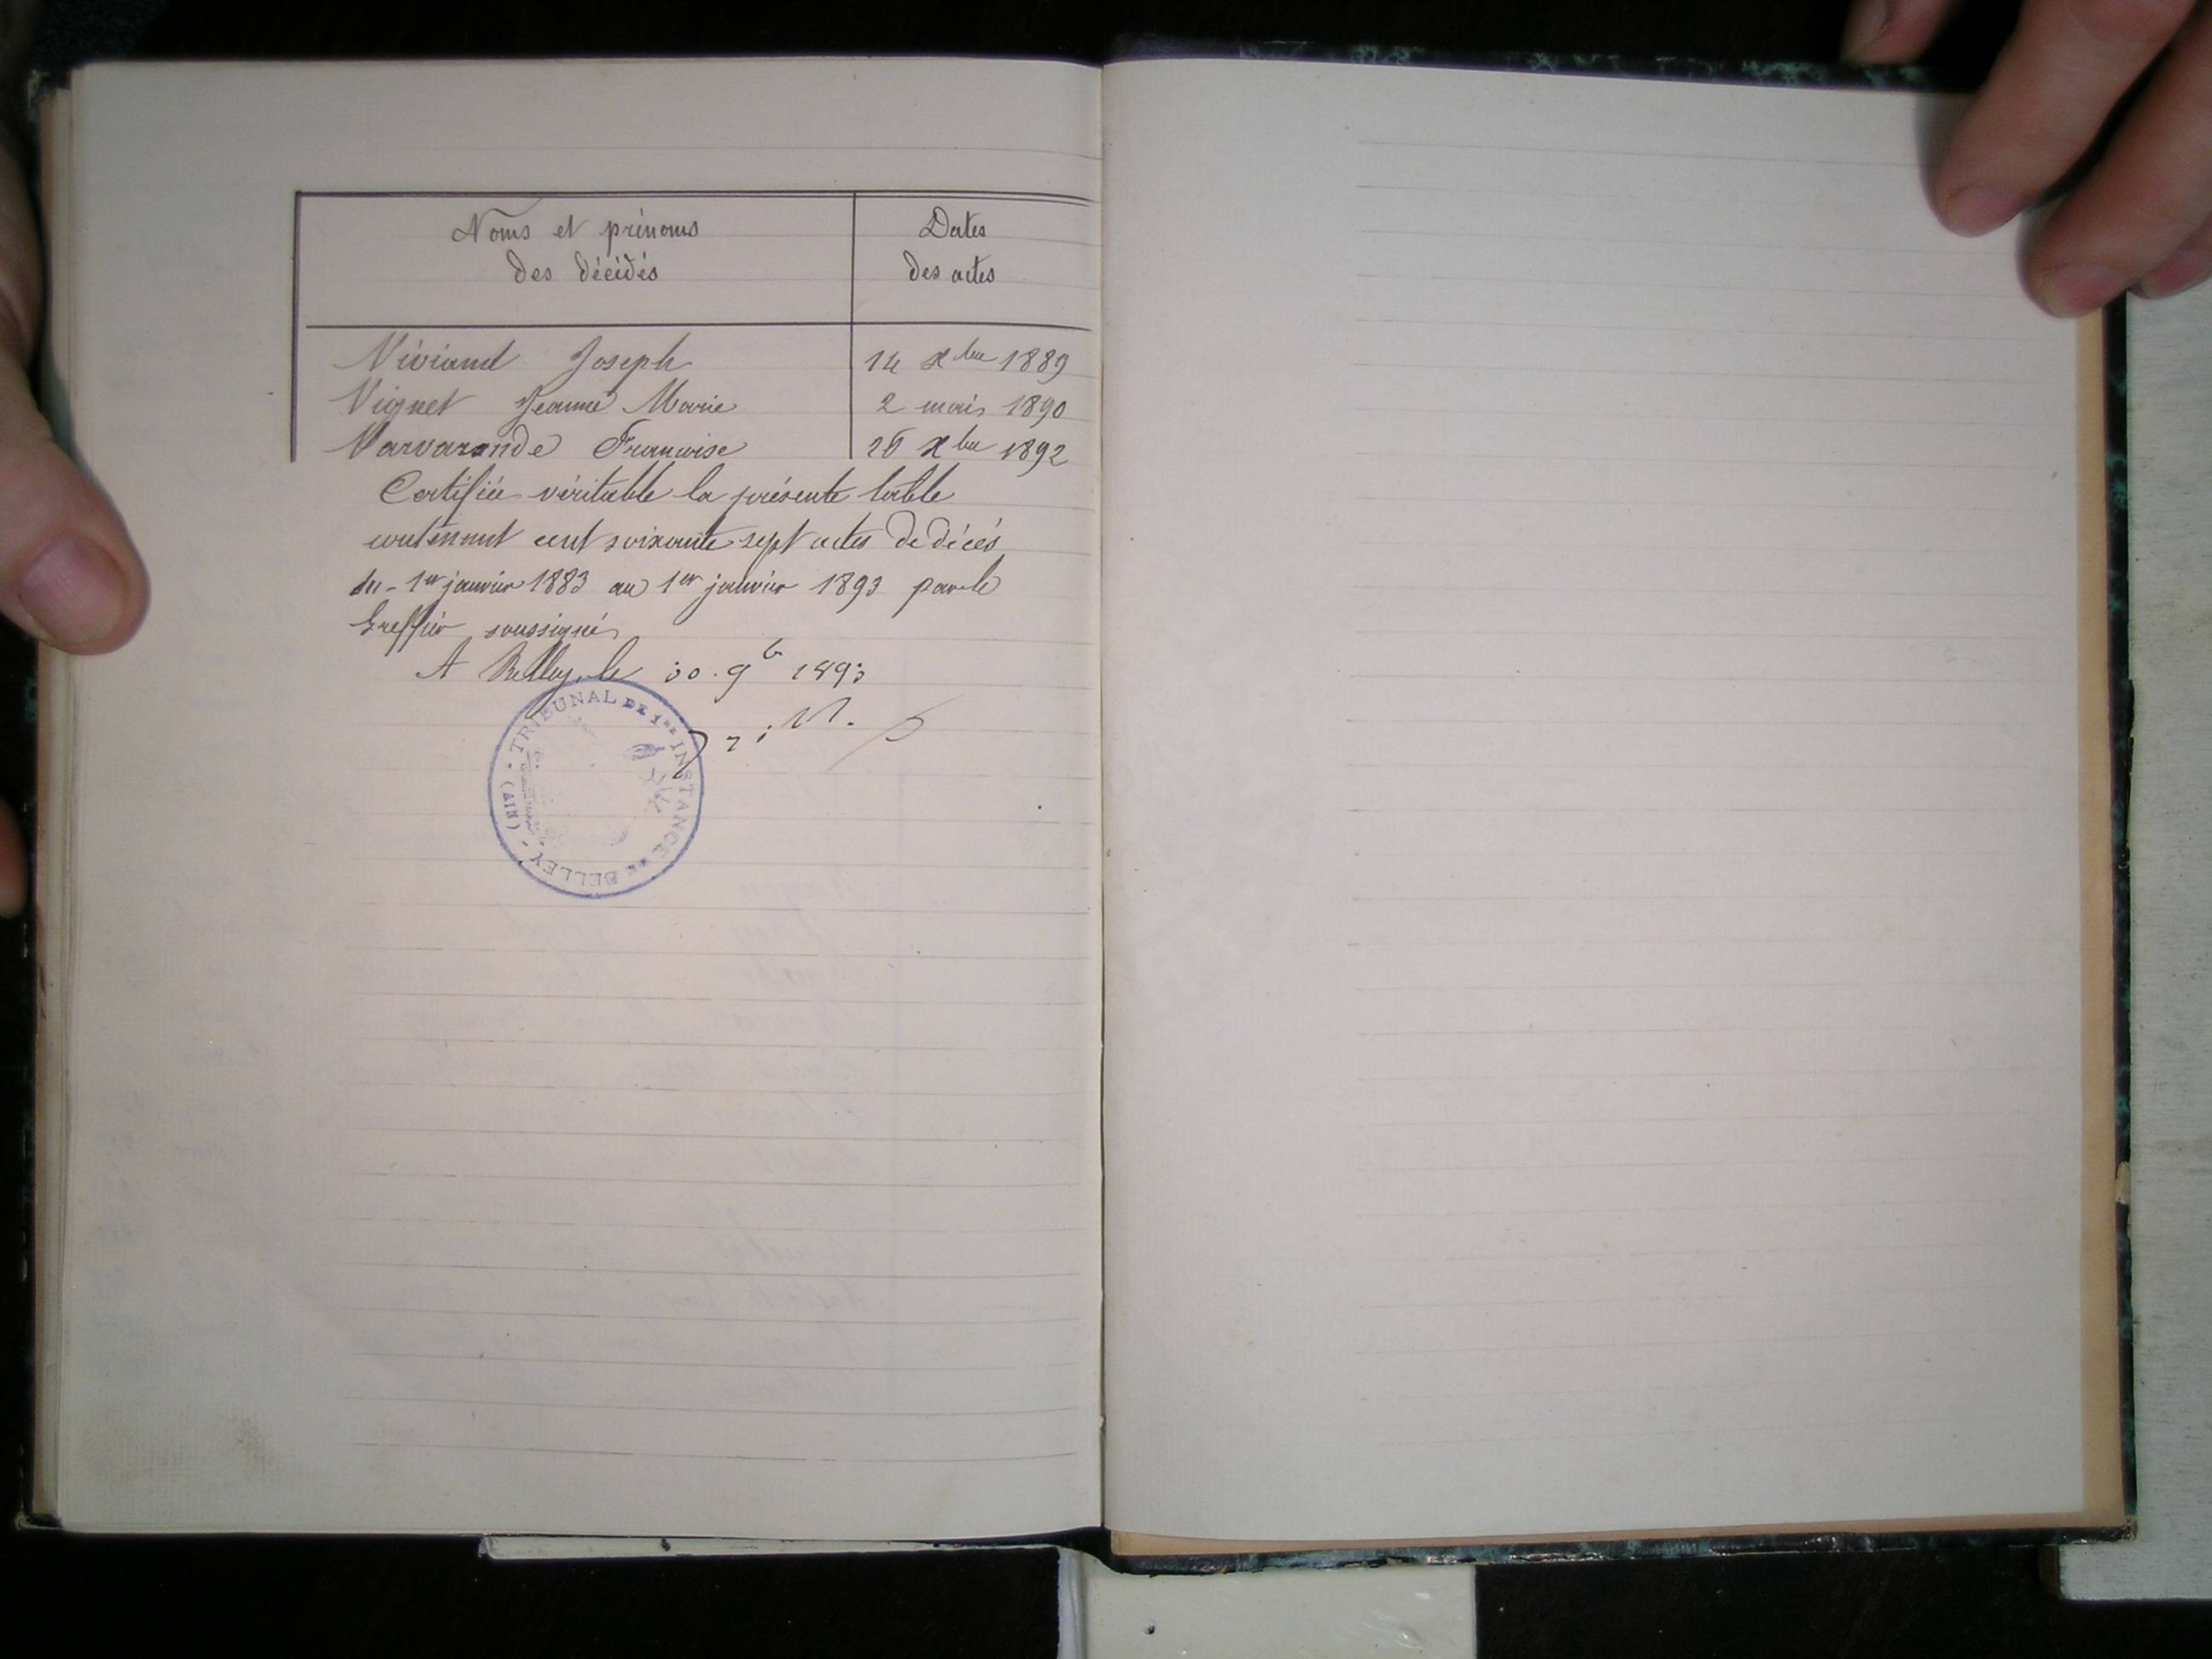 Noms et prénoms
des décédés
Dates
des actes
Viviand Joseph 14 Xbre 1889
Vignet Jeanne Marie 2 mars 1890
Varvarande Françoise 26 Xbre 1892
Certifiée véritable la présente table
contenant cent soixante sept actes de décès
du 1er janvier 1883 au 1er janvier 1893 par le
Greffier soussigné
A Belley, le 30. 9b 1893
TRIBUNAL DE 1re INSTANCE DE BELLEY - (AIN) -